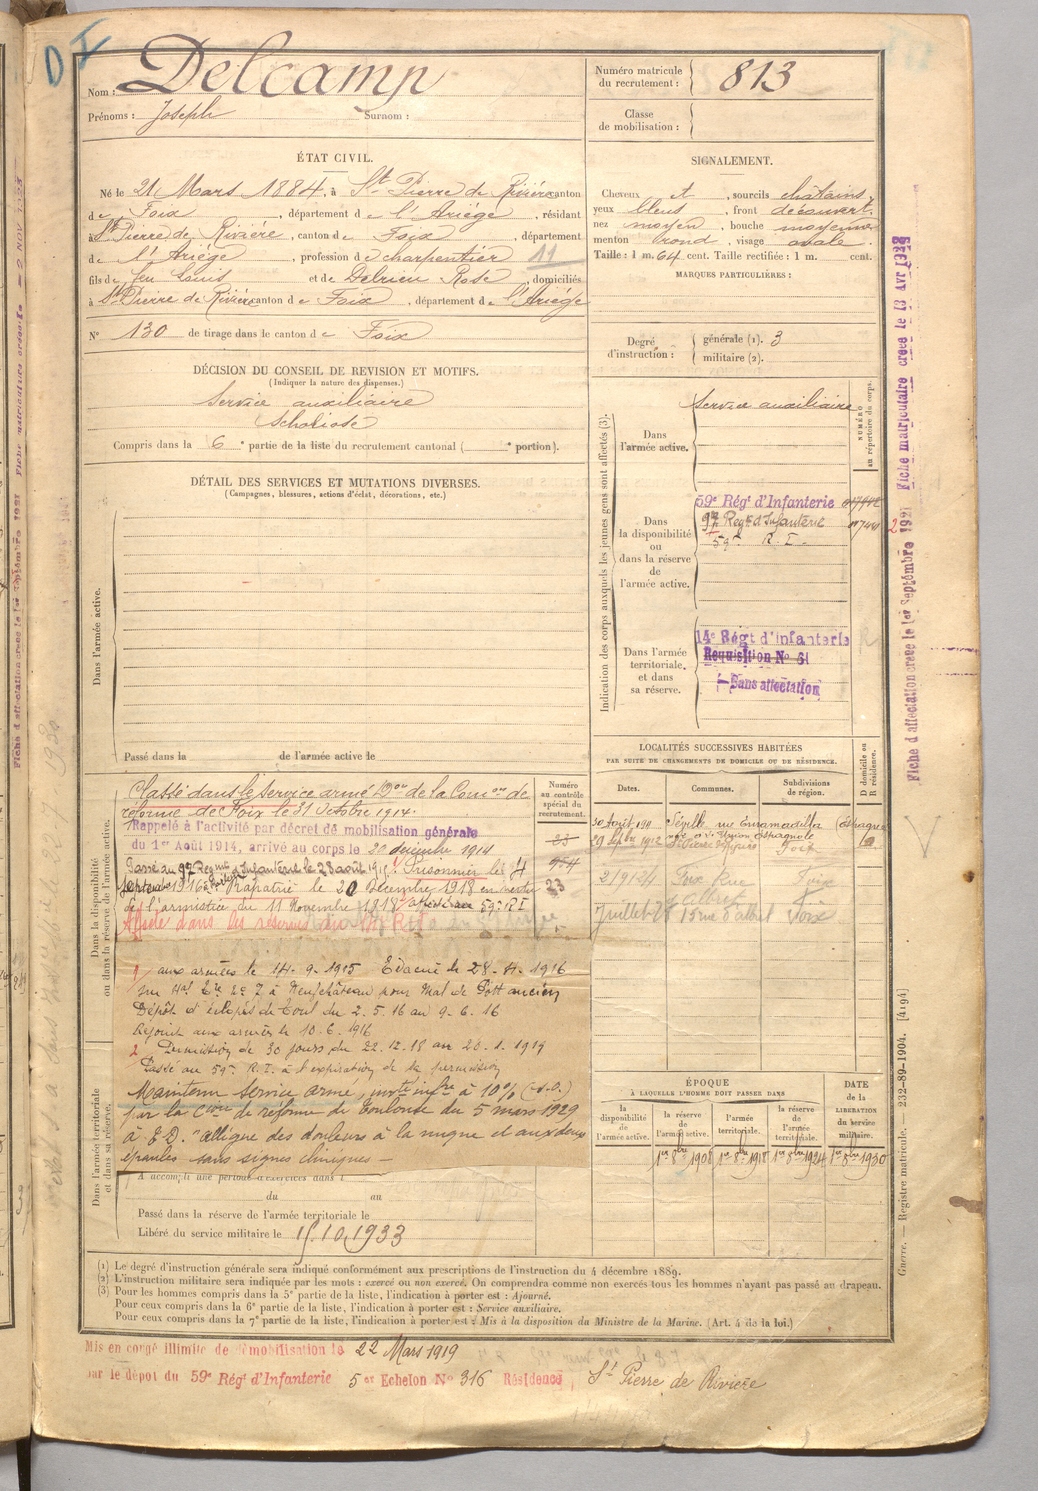 DI
Nom : Delcamp
Prénoms : Joseph Surnom :
Numéro matricule du recrutement : 813
Classe de mobilisation :
ÉTAT CIVIL.
Né le 21 Mars 1884, à St Pierre de Rivière canton
de Foix, département de l'Ariége, résidant
à St Pierre de Rivière, canton de Foix, département
de l'Ariége, profession de charpentier 11
fils de feu Louis et de Delrieu Rose, domiciliés
à St Pierre de Rivière canton de Foix, département de l'Ariége
N° 130 de tirage dans le canton de Foix
SIGNALEMENT.
Cheveux et, sourcils châtains,
yeux bleus, front découvert,
nez moyen, bouche moyenne
menton rond, visage ovale.
Taille : 1 m. 64 cent. Taille rectifiée : 1 m. cent.
MARQUES PARTICULIÈRES :
Degré d'instruction : générale (1). 3
militaire (2).
DÉCISION DU CONSEIL DE REVISION ET MOTIFS.
(Indiquer la nature des dispenses.)
Service auxiliaire
Scholiose
Compris dans la 6e partie de la liste du recrutement cantonal ( e portion).
DÉTAIL DES SERVICES ET MUTATIONS DIVERSES.
(Campagnes, blessures, actions d'éclat, décorations, etc.)
Dans l'armée active.
Passé dans la de l'armée active le
Indication des corps auxquels les jeunes gens sont affectés (3).
NUMÉRO au répertoire du corps.
Dans l'armée active.
Service auxiliaire
Dans la disponibilité ou dans la réserve de l'armée active.
59e Régt d'Infanterie
97 Regt d'Infanterie
59e R.I.
Dans l'armée territoriale. et dans sa réserve.
14e Régt d'infanterie
Requisition No 61
Sans affectation
LOCALITÉS SUCCESSIVES HABITÉES
PAR SUITE DE CHANGEMENTS DE DOMICILE OU DE RÉSIDENCE.
Dates. Communes. Subdivisions de région. D domicile ou R résidence.
30 Août 1911 (Espagne)
Foix
2/9/24 Foix Rue Albret Foix
Juillet 27 15 rue d'albret Foix
Dans la disponibilité ou dans la réserve de l'armée active.
Numéro au contrôle spécial du recrutement.
23
23
Classé dans le service armé Don de la Comon de
réforme de Foix le 31 Octobre 1914.
Rappelé à l'activité par décret de mobilisation générale
du 1er Août 1914, arrivé au corps le 20 décembre 1914
Passé au 97 Regmt d'Infanterie le 28 août 1915. Prisonnier le 4
septembre 1916 Rapatrié le 20 Décembre 1918 en vertu
de l'armistice du 11 Novembre 1918 affecté au 59e RI
Affecté dans les réserves au
1/ aux armées le 14.9.1915 Evacué le 28.4.1916
à Neufchâteau pour Mal de Pott ancien
Dépôt d'éclopés de Toul du 2.5.16 au 9.6.16
Rejoint aux armées le 10.6.1916
2 Permission de 30 jours du 22.12.18 au 20.1.1919
Passé au 59e R.I. à l'expiration de sa permission
Maintenu service armé, invte infre à 10% (s.o.)
par la Cion de réforme de Toulouse du 5 mars 1929
à E D. "allègue des douleurs à la nuque et aux deux
épaules sans signes cliniques —
Dans l'armée territoriale et dans sa réserve.
A accompli une période d'exercices dans l
du au
Passé dans la réserve de l'armée territoriale le
Libéré du service militaire le 15.10.1933
ÉPOQUE
À LAQUELLE L'HOMME DOIT PASSER DANS
la disponibilité de l'armée active.
la réserve de l'armée active.
l'armée territoriale.
la réserve de l'armée territoriale.
DATE de la LIBÉRATION du service militaire.
1er 8bre 1908 1er 8bre 1918 1er 8bre 1924 1er 8bre 1930
(1) Le degré d'instruction générale sera indiqué conformément aux prescriptions de l'instruction du 4 décembre 1889.
(2) L'instruction militaire sera indiquée par les mots : exercé ou non exercé. On comprendra comme non exercés tous les hommes n'ayant pas passé au drapeau.
(3) Pour les hommes compris dans la 5e partie de la liste, l'indication à porter est : Ajourné.
Pour ceux compris dans la 6e partie de la liste, l'indication à porter est : Service auxiliaire.
Pour ceux compris dans la 7e partie de la liste, l'indication à porter est : Mis à la disposition du Ministre de la Marine. (Art. 4 de la loi.)
Mis en congé illimité de démobilisation le 22 Mars 1919
par le dépot du 59e Régt d'Infanterie 5er Echelon No 316 Résidence, St Pierre de Rivière
Fiche d'affectation créée le 1er Septembre 1921 Fiche matriculaire créée le 13 Avr 1928
Guerre. — Registre matricule. — 232-99-1904. [4194]